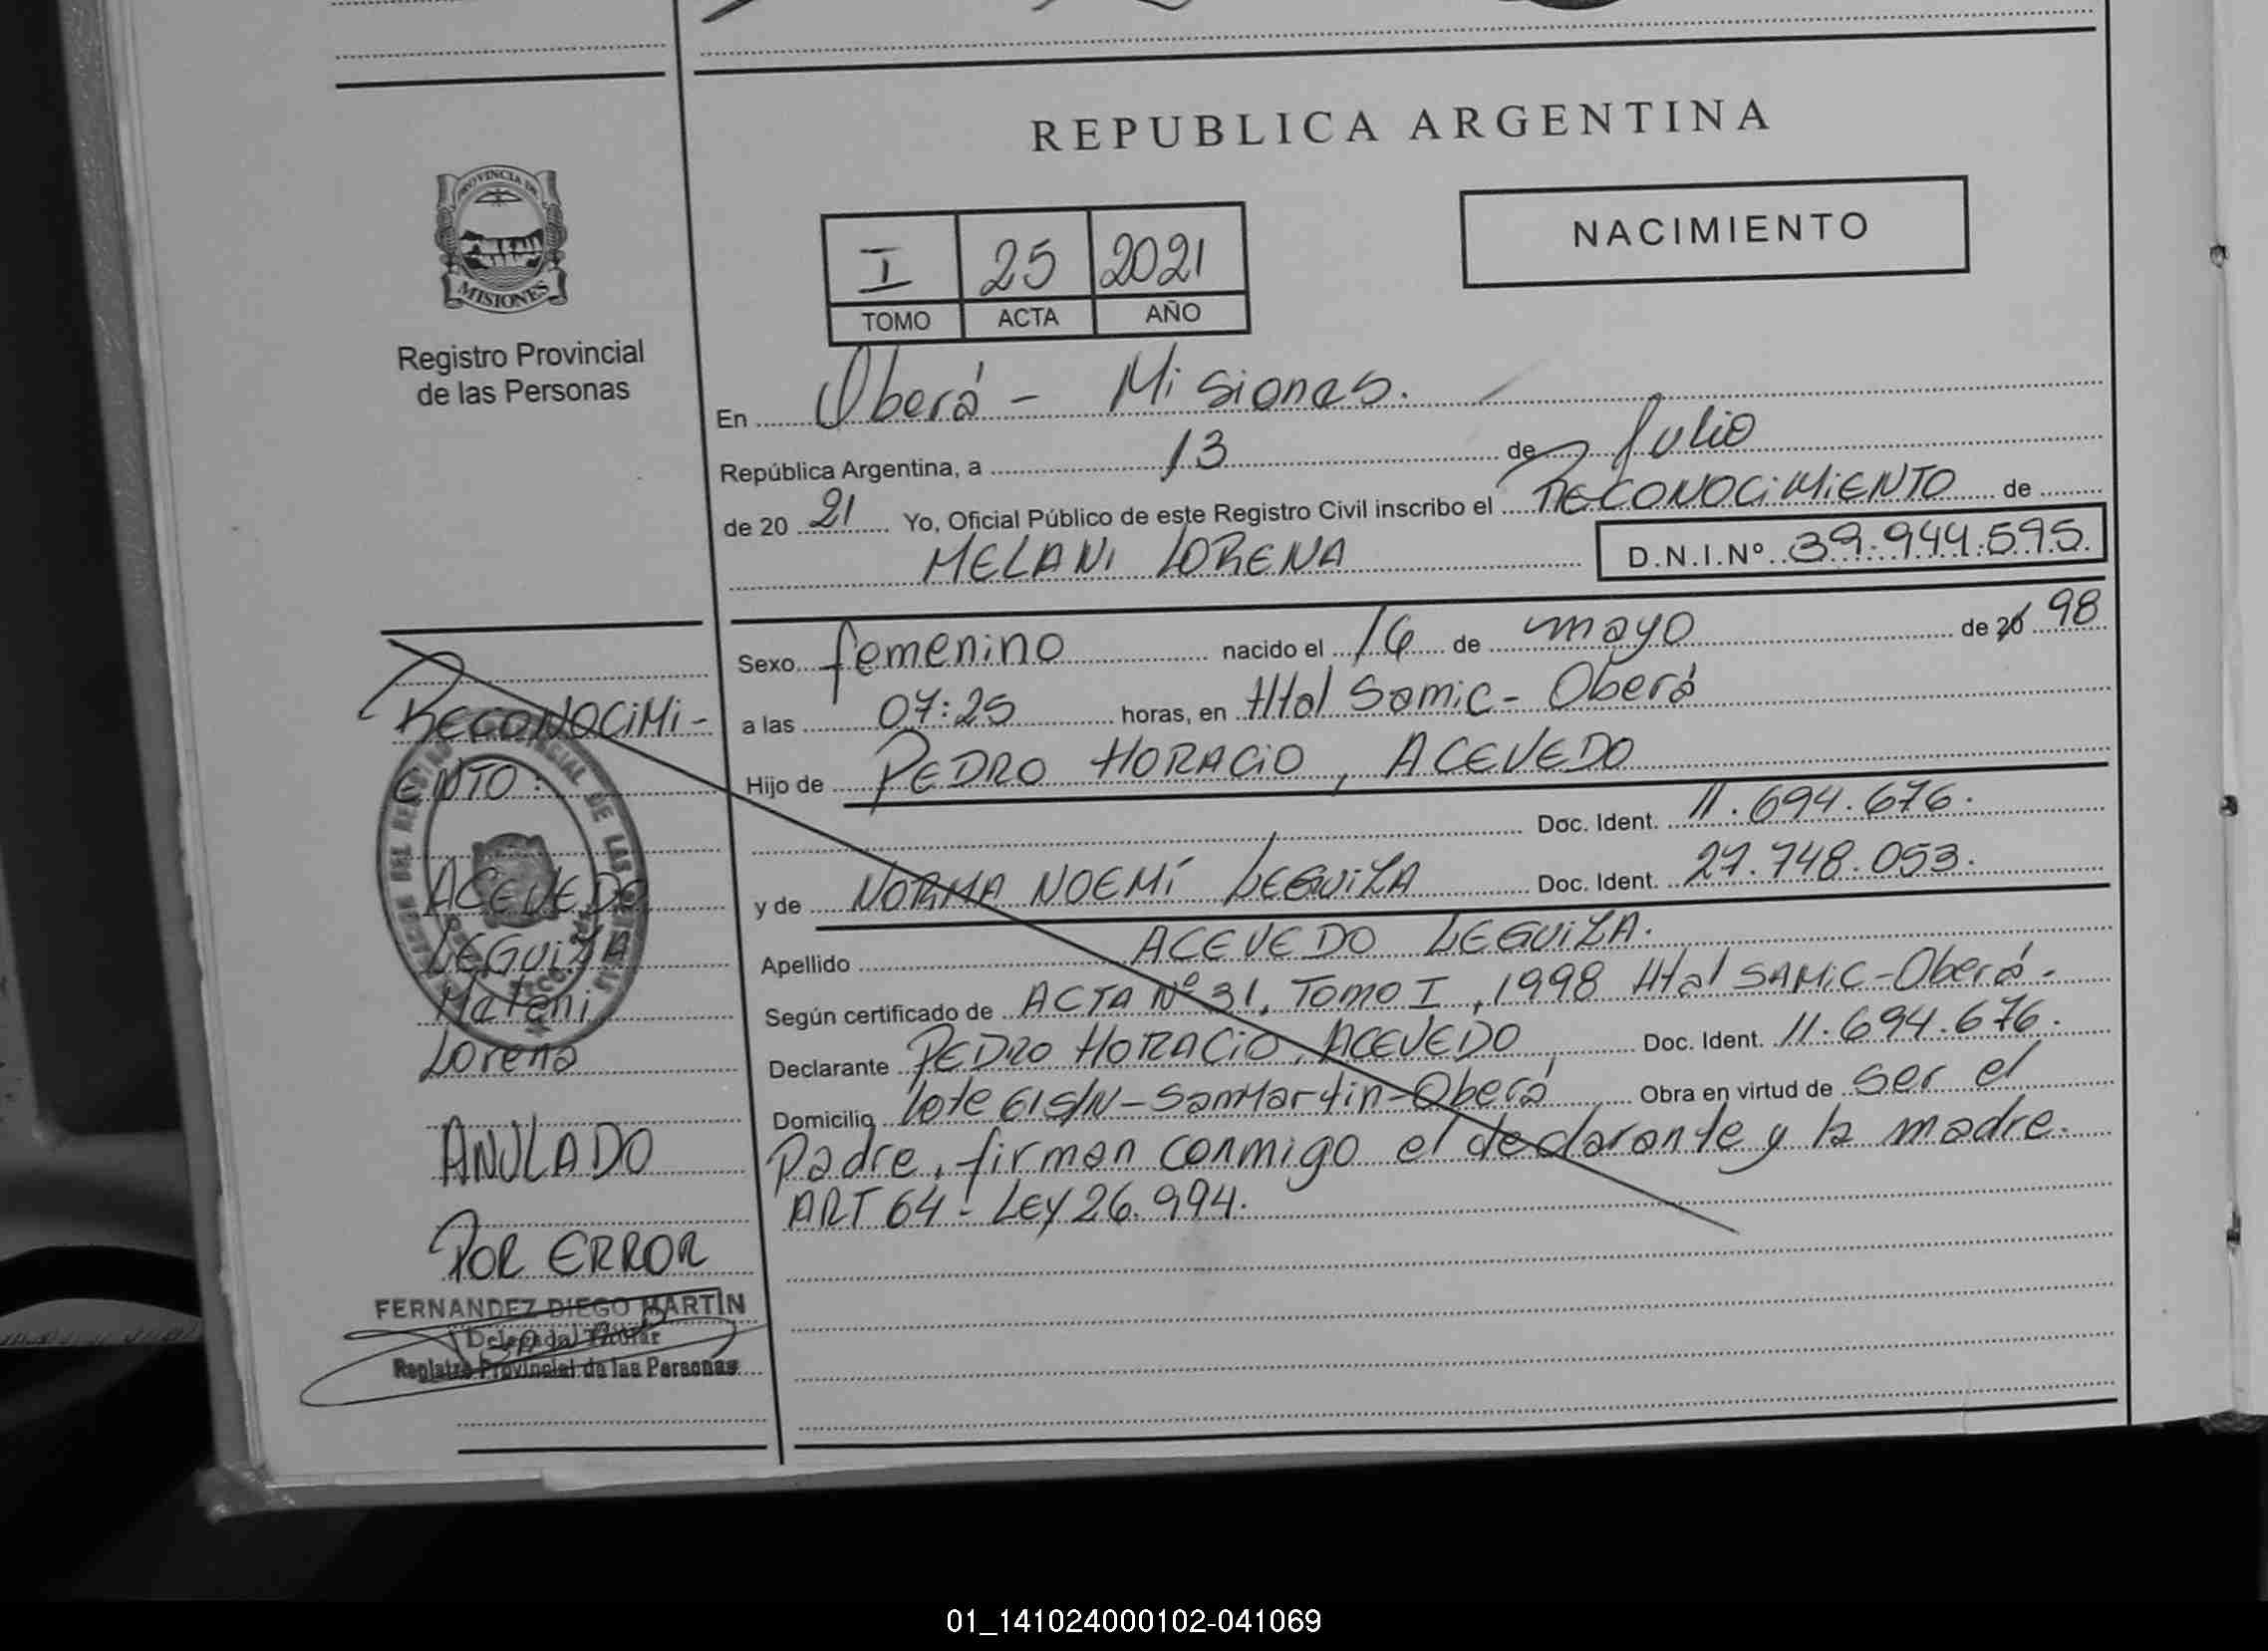 REPUBLICA ARGENTINA
PROVINCIA DE
MISIONES
Registro Provincial
de las Personas
I 25 2021
TOMO ACTA AÑO
NACIMIENTO
En Oberá - Misiones.
República Argentina, a 13 de Julio
de 20 21 Yo, Oficial Público de este Registro Civil inscribo el RECONOCIMIENTO de
MELANI LORENA D.N.I.Nº 39.944.595.
Sexo femenino nacido el 16 de mayo de 20 98
a las 07:25 horas, en Htal Samic - Oberá
Hijo de PEDRO HORACIO, ACEVEDO
Doc. Ident. 11.694.676.
y de NORMA NOEMÍ LEGUIZA Doc. Ident. 27.748.053.
Apellido ACEVEDO LEGUIZA.
Según certificado de ACTA Nº 31, TOMO I, 1998 Htal SAMIC - Oberá -
Declarante PEDRO HORACIO, ACEVEDO Doc. Ident. 11.694.676.
Domicilio Lote 61 S/N - San Martin - Oberá Obra en virtud de ser el
Padre, firman conmigo el declarante y la madre.
ART 64 - LEY 26.994.
RECONOCIMI-
ENTO:
ACEVEDO
LEGUIZA
Melani
Lorena
ANULADO
POR ERROR
FERNANDEZ DIEGO MARTIN
Delegado Titular
Registro Provincial de las Personas
01_141024000102-041069